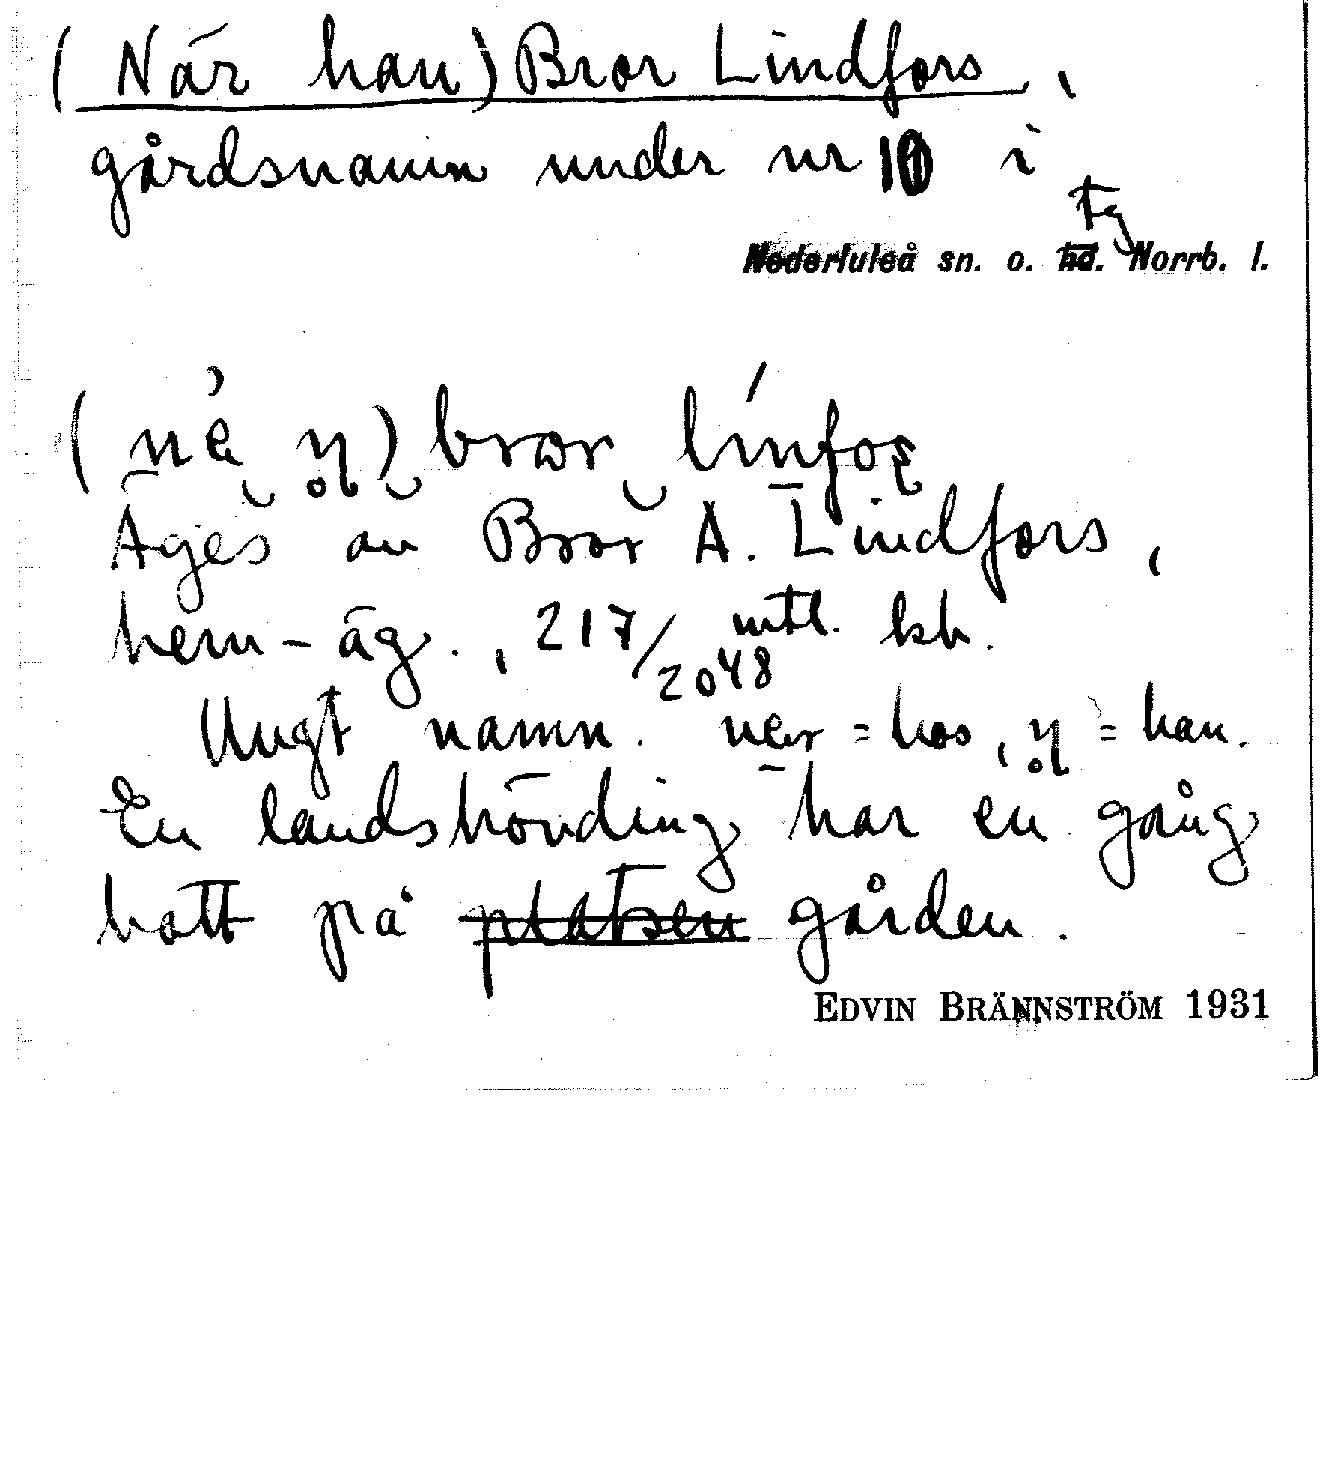 (När han) Bror Lindfors,
gårdsnamn under nr 10 i
tg
Nederluleå sn. o. hd. Norrb. l.
bror
Äges av Bror A. Lindfors,
hem-äg., 217/2048 mtl. kb.
Ungt namn. = hos, = han.
En landshövding har en gång
bott på platsen gården.
EDVIN BRÄNNSTRÖM 1931